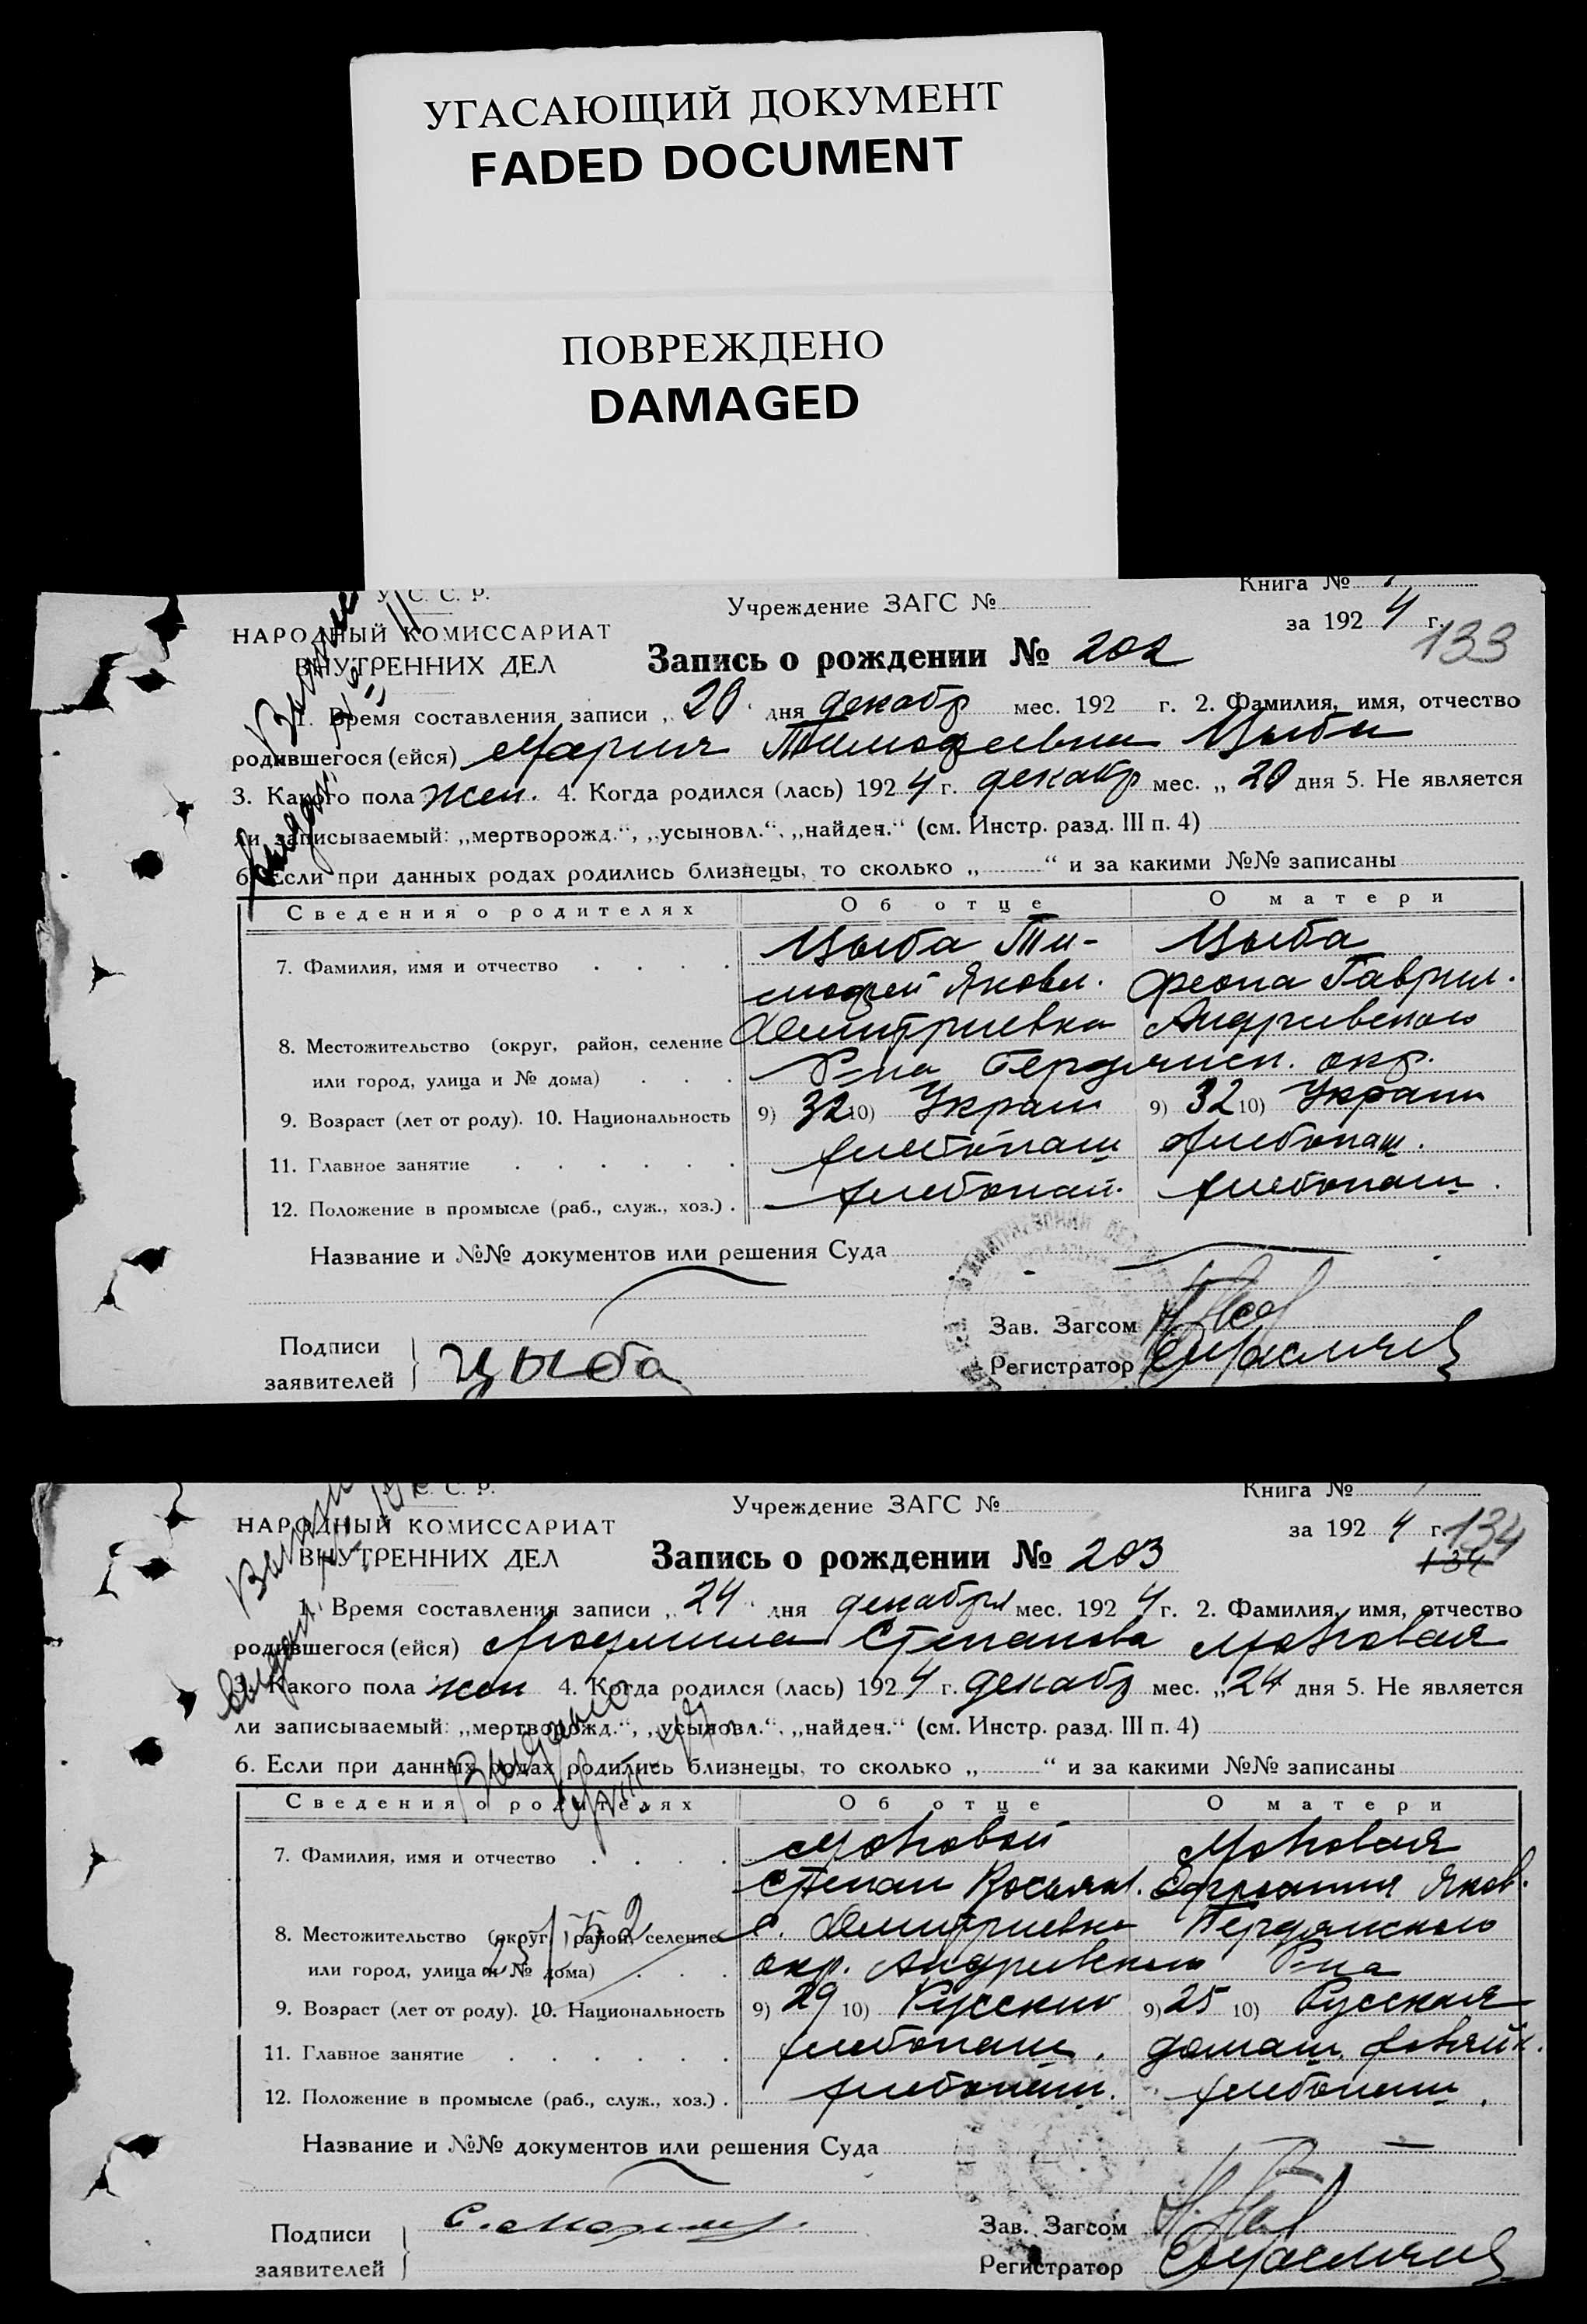 УГАСАЮЩИЙ ДОКУМЕНТ
FADED DOCUMENT
ПОВРЕЖДЕНО
DAMAGED
У. С. С. Р.
Учреждение ЗАГС №
Книга №
НАРОДНЫЙ КОМИССАРИАТ
ВНУТРЕННИХ ДЕЛ
за 1924 г.
133
Запись о рождении № 202
1. Время составления записи „20" дня декабр мес. 192 г. 2. Фамилия, имя, отчество
родившегося (ейся) Мария Тимофеевна Цыба
3. Какого пола жен. 4. Когда родился (лась) 1924 г. декабр мес. „20 дня 5. Не является
ли записываемый: „мертворожд.“, „усыновл.“, „найден.“ (см. Инстр. разд. III п. 4)
6. Если при данных родах родились близнецы, то сколько „ “ и за какими №№ записаны
Сведения о родителях Об отце О матери
7. Фамилия, имя и отчество Цыба Ти- Цыба
мофей Яковл. Феона Гаврил.
8. Местожительство (округ, район, селение Дмитриевка Андриевского
или город, улица и № дома) Р-на Бердянск. окр.
9. Возраст (лет от роду). 10. Национальность 9) 32 10) Украин 9) 32 10) Украин
11. Главное занятие хлебопаш хлебопаш.
12. Положение в промысле (раб., служ., хоз.) хлебопаш. хлебопаш.
Название и №№ документов или решения Суда
Подписи
заявителей
Цыба
Зав. Загсом
Регистратор
У. С. С. Р.
Учреждение ЗАГС №
Книга №
НАРОДНЫЙ КОМИССАРИАТ
ВНУТРЕННИХ ДЕЛ
за 1924 г.
134
134
Запись о рождении № 203
1. Время составления записи „24" дня декабря мес. 1924 г. 2. Фамилия, имя, отчество
родившегося (ейся) Людмила Степанова Моховая
3. Какого пола жен 4. Когда родился (лась) 1924 г. декабр мес. „24 дня 5. Не является
ли записываемый: „мертворожд.“, „усыновл.“, „найден.“ (см. Инстр. разд. III п. 4)
Выдано
6. Если при данных родах родились близнецы, то сколько „ “ и за какими №№ записаны
Сведения о родителях Об отце О матери
7. Фамилия, имя и отчество Моховой Моховая
Степан Касьян. Ефросиния Яков.
8. Местожительство (округ, район, селение с. Дмитриевка Бердянского
или город, улица и № дома) окр. Андриевского Р-на
9. Возраст (лет от роду). 10. Национальность 9) 29 10) Русский 9) 25 10) Русская
11. Главное занятие хлебопаш. домаш. хозяйк.
12. Положение в промысле (раб., служ., хоз.) хлебопаш. хлебопаш.
Название и №№ документов или решения Суда
Подписи
заявителей
Зав. Загсом
Регистратор